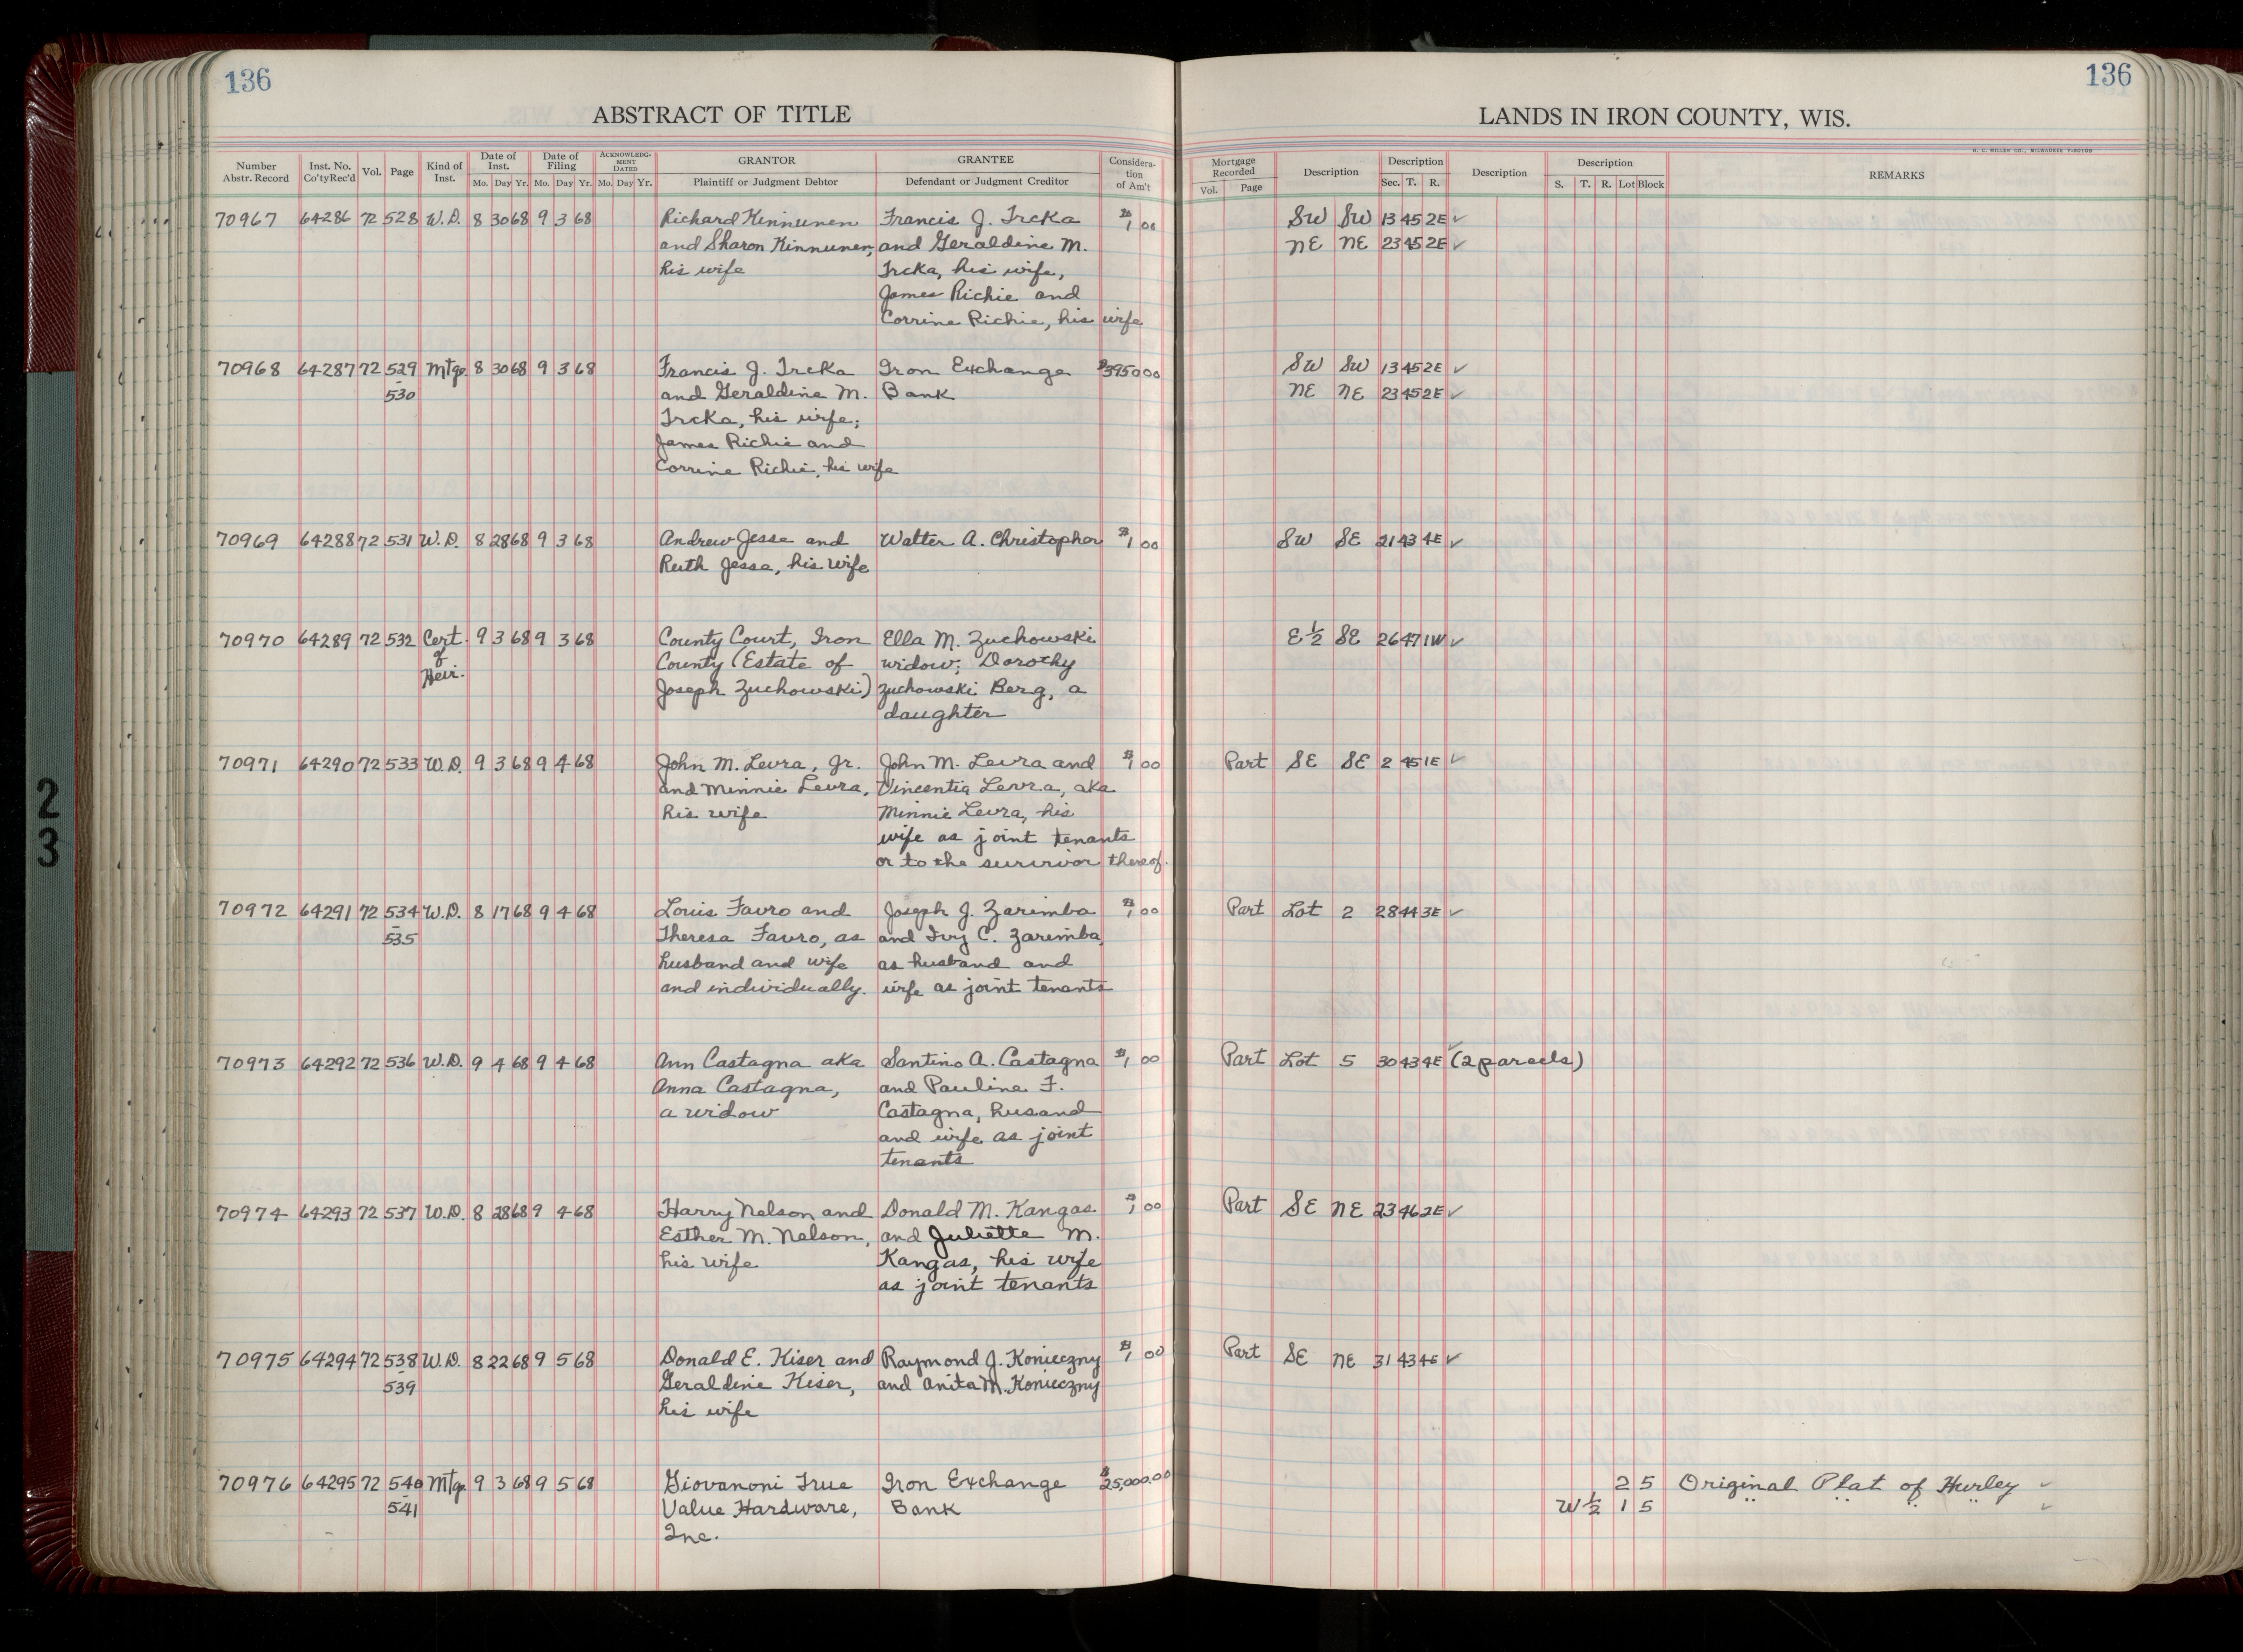 136
ABSTRACT OF TITLE
Number Abstr. Record Inst. No. Co'ty Rec'd Vol. Page Kind of Inst. Date of Inst. Mo. Day Yr. Date of Filing Mo. Day Yr. ACKNOWLEDGMENT DATED Mo. Day Yr. GRANTOR Plaintiff or Judgment Debtor GRANTEE Defendant or Judgment Creditor Consideration of Am't
136
LANDS IN IRON COUNTY, WIS.
H. C. MILLER CO., MILWAUKEE
Mortgage Recorded Vol. Page Description Description Sec. T. R. Description Description S. T. R. Lot Block REMARKS
70967 64286 72 528 W.D. 8 30 68 9 3 68 Richard Kinnunen Francis J. Trcka $1 00 SW SW 13 45 2E ✓
and Sharon Kinnunen, and Geraldine M. NE NE 23 45 2E ✓
his wife Trcka, his wife,
James Richie and
Corrine Richie, his wife
70968 64287 72 529 Mtge. 8 30 68 9 3 68 Francis J. Trcka Iron Exchange $3950 00 SW SW 13 45 2E ✓
- 530 and Geraldine M. Bank NE NE 23 45 2E ✓
Trcka, his wife;
James Richie and
Corrine Richie, his wife
70969 64288 72 531 W.D. 8 28 68 9 3 68 Andrew Jesse and Walter A. Christopher $1 00 SW SE 21 43 4E ✓
Ruth Jesse, his wife
70970 64289 72 532 Cert. 9 3 68 9 3 68 County Court, Iron Ella M. Zuchowski E½ SE 26 47 1W ✓
of County (Estate of widow; Dorothy
Heir. Joseph Zuchowski) Zuchowski Berg, a
daughter
70971 64290 72 533 W.D. 9 3 68 9 4 68 John M. Levra, Jr. John M. Levra and $1 00 Part SE SE 2 45 1E ✓
and Minnie Levra, Vincentia Levra, aka
his wife Minnie Levra, his
wife as joint tenants
or to the survivor thereof.
70972 64291 72 534 W.D. 8 17 68 9 4 68 Louis Favro and Joseph J. Zarimba $1 00 Part Lot 2 28 44 3E ✓
- 535 Theresa Favro, as and Ivy C. Zarimba,
husband and wife as husband and
and individually. wife as joint tenants
70973 64292 72 536 W.D. 9 4 68 9 4 68 Ann Castagna aka Santino A. Castagna $1 00 Part Lot 5 30 43 4E ✓ (2 parcels)
Anna Castagna, and Pauline F.
a widow Castagna, husand
and wife as joint
tenants
70974 64293 72 537 W.D. 8 28 68 9 4 68 Harry Nelson and Donald M. Kangas $1 00 Part SE NE 23 46 2E ✓
Esther M. Nelson, and Juliette M.
his wife Kangas, his wife
as joint tenants
70975 64294 72 538 W.D. 8 22 68 9 5 68 Donald E. Kiser and Raymond J. Konieczny $1 00 Part SE NE 31 43 4E ✓
- 539 Geraldine Kiser, and Anita M. Konieczny
his wife
70976 64295 72 540 Mtge. 9 3 68 9 5 68 Giovanoni True Iron Exchange $25,000.00 2 5 Original Plat of Hurley ✓
- 541 Value Hardware, Bank W½ 1 5 " " " " ✓
Inc.
2
3